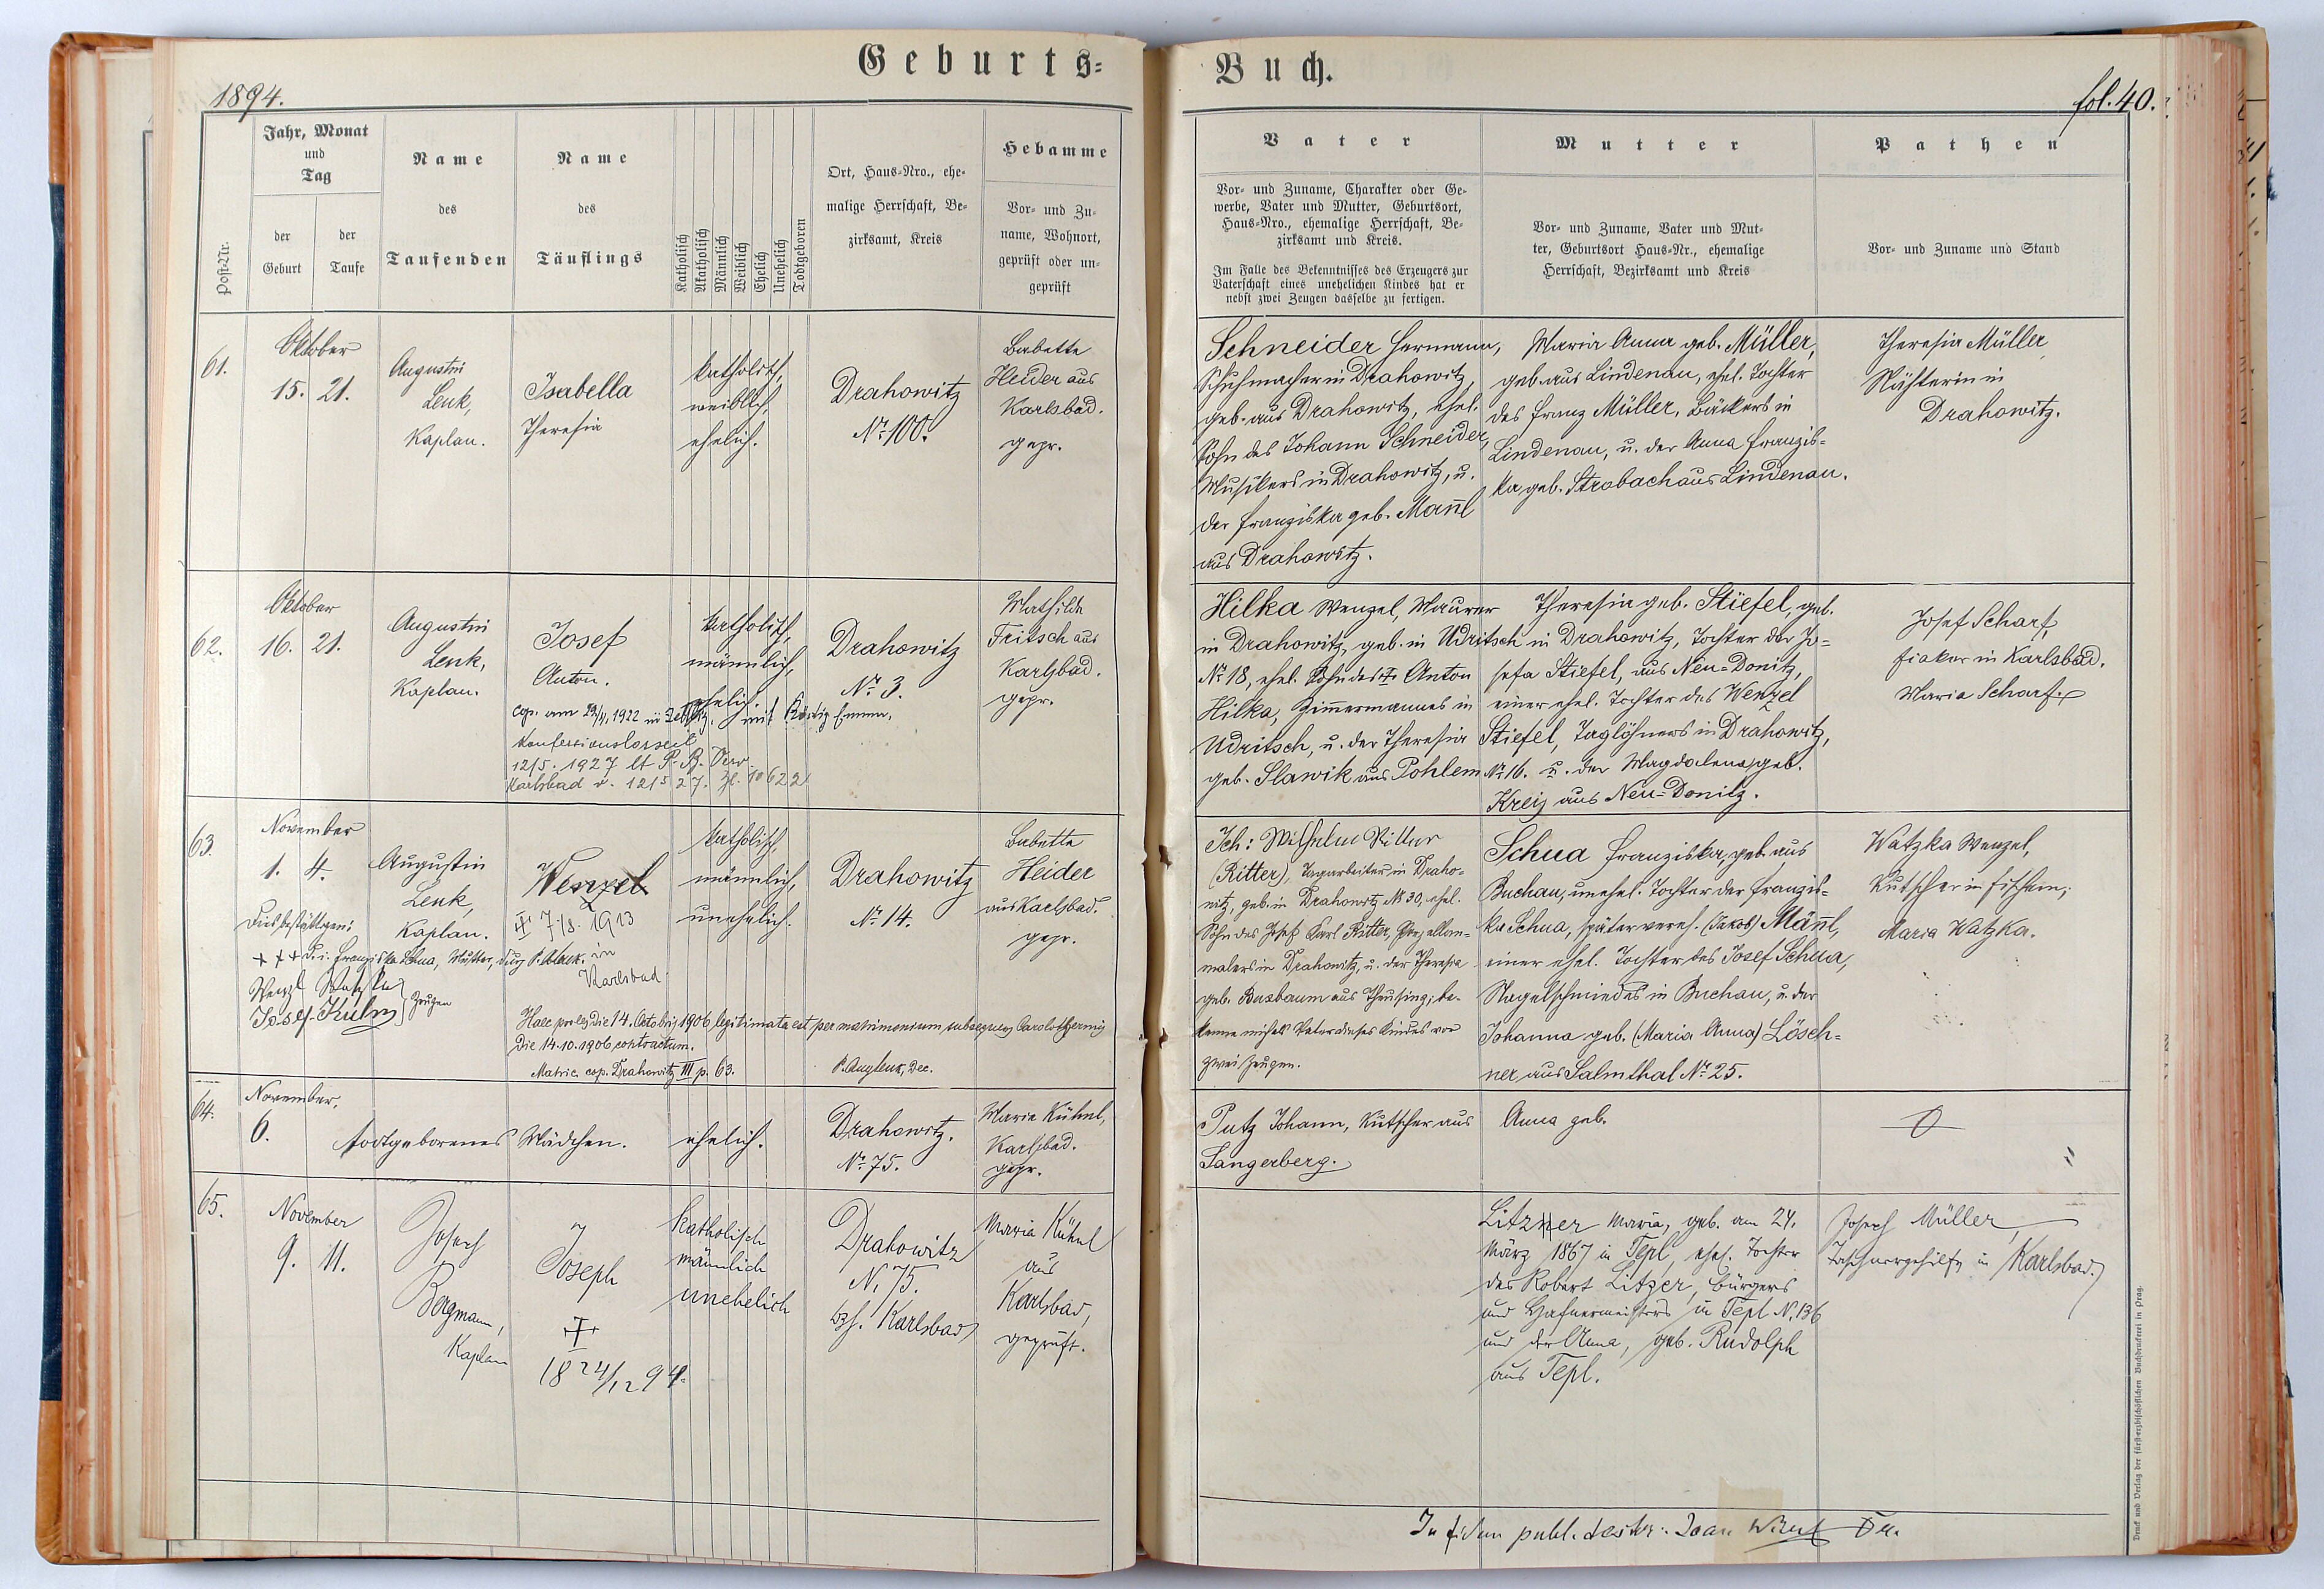 Geburts=
Buch.
1894.
fol. 40.
Post-Nr.
Jahr, Monat
und
Tag
der
Geburt
der
Taufe
Name
des
Taufenden
Name
des
Täuflings
Katholisch
Akatholisch
Männlich
Weiblich
Ehelich
Unehelich
Todtgeboren
Ort, Haus-Nro., ehe-
malige Herrschaft, Be-
zirksamt, Kreis
Hebamme
Vor- und Zu-
name, Wohnort,
geprüft oder un-
geprüft
Vater
Vor- und Zuname, Charakter oder Ge-
werbe, Vater und Mutter, Geburtsort,
Haus-Nro., ehemalige Herrschaft, Be-
zirksamt und Kreis.
Im Falle des Bekenntnisses des Erzeugers zur
Vaterschaft eines unehelichen Kindes hat er
nebst zwei Zeugen dasselbe zu fertigen.
Mutter
Vor- und Zuname, Vater und Mut-
ter, Geburtsort Haus-Nr., ehemalige
Herrschaft, Bezirksamt und Kreis
Pathen
Vor- und Zuname und Stand
61.
Oktober
15. 21.
Augustin
Lenk,
Kaplan.
Isabella
Theresia
katholisch,
weiblich,
ehelich.
Drahowitz
Nr. 100.
Babette
Heider aus
Karlsbad.
gepr.
Schneider Hermann,
Schuhmacher in Drahowitz,
geb. aus Drahowitz, ehel.
Sohn des Johann Schneider,
Musikers in Drahowitz, u.
der Franziska geb. Mañl
aus Drahowitz.
Maria Anna geb. Müller,
geb. aus Lindenau, ehel. Tochter
des Franz Müller, Bäckers in
Lindenau, u. der Anna Franzis-
ka geb. Strobach aus Lindenau.
Theresia Müller
Nähterin in
Drahowitz.
62.
Oktober
16. 21.
Augustin
Lenk,
Kaplan.
Josef
Anton.
cop. am 1922 in mit Emma,
Konfessionslos seit
12/5. 1927 lt P. B. Verw.
Karlsbad v. 12/5 27. Zl. 10622
katholisch,
männlich,
ehelich.
Drahowitz
Nr. 3.
Mathilde
Fritsch aus
Karlsbad.
gepr.
Hilka Wenzel, Maurer
in Drahowitz, geb. in Udritsch
Nr. 18, ehel. Sohn des † Anton
Hilka, Zim̄ermannes in
Udritsch, u. der Theresia
geb. Slawik aus Pohlem
Theresia geb. Stiefel, geb.
in Drahowitz, Tochter der Jo-
sefa Stiefel, aus Neu-Donitz,
einer ehel. Tochter des Wenzel
Stiefel, Taglöhners in Drahowitz,
Nr. 16. u. der Magdalena geb.
Kreiz aus Neu-Donitz.
Josef Scharf,
Fiaker in Karlsbad.
Maria Scharf.
63.
November
1. 4.
Augustin
Lenk,
Kaplan.
Dies bestättigen:
+ + + d. i. Franziska Schua, Mutter, durch P. A. Lenk.
Wenzl Watzka
Josef Kuhn } Zeugen
Wenzel
† 7/8. 1913
in
Karlsbad
katholisch,
männlich,
unehelich.
Drahowitz
Nr. 14.
Babette
Heider
aus Karlsbad.
gepr.
Haec proles die 14. Octobris 1906 legitimata est per matrimonium subsequens Carolothermis
die 14.10.1906 contractum.
Matric. cop. Drahowitz III p. 63.
P. Aug Lenk, Dec.
Ich: Wilhelm Ritter
(Ritter), Tagarbeiter in Draho-
witz, geb. in Drahowitz Nr 30, ehel.
Sohn des Josef Karl Ritter, Porzellan-
malers in Drahowitz, u. der Theresia
geb. Buxbaum aus Theusing, be-
kenne mich als Vater dieses Kindes vor
zwei Zeugen.
Schua Franziska, geb. aus
Buchau, unehel. Tochter der Franzis-
ka Schua, später vereh. (Jakob) Mäñl,
einer ehel. Tochter des Josef Schua,
Nagelschmiedes in Buchau, u. der
Johanna geb. (Maria Anna) Lösch-
ner aus Salmthal Nr. 25.
Watzka Wenzel,
Kutscher in Fischern;
Maria Watzka.
64.
November,
6.
todtgeborenes Mädchen.
ehelich.
Drahowitz.
Nr. 75.
Maria Kühnl,
Karlsbad.
gepr.
Putz Johann, Kutscher aus
Sangerberg.
Anna geb.
65.
November
9. 11.
Joseph
Bergmann,
Kaplan
Joseph
†
18 24/12 94.
katholisch
männlich
unehelich
Drahowitz
N. 75.
Bzh. Karlsbad
Maria Kühnl
aus
Karlsbad,
geprüft.
Litzner Maria, geb. am 24.
März 1867 in Tepl, ehel. Tochter
des Robert Litzer, Bürgers
und Hafnermeisters in Tepl N. 136
und der Anna, geb. Rudolph
aus Tepl.
Joseph Müller,
Taschnergehilfe in Karlsbad.
In fidem publ. testor: Joan
Druck und Verlag der fürst-erzbischöflichen Buchdruckerei in Prag.